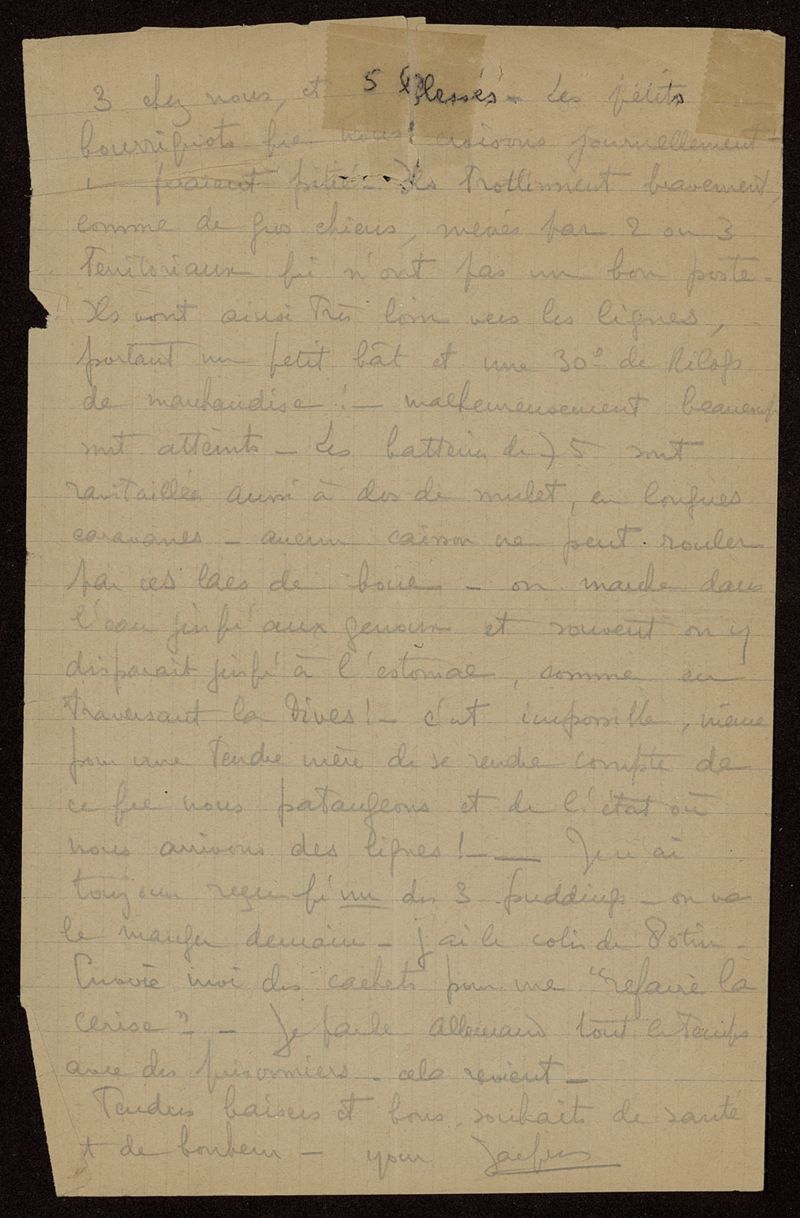 3 chez nous, et 5 blessés - Les petits
bourriquots que nous croisons journellement -
feraient pitié - Ils trottinent bravement,
comme de gros chiens, menés par 2 ou 3
Territoriaux qui n'ont pas un bon poste -
Ils vont ainsi Très loin vers les lignes,
portant un petit bât et une 30e de Kilogs
de marchandise ! - malheureusement beaucoup
sont atteints - Les batteries de 75 sont
ravitaillées aussi à dos de mulet, en longues
caravanes - aucun caisson ne peut rouler
par ces lacs de boue - on marche dans
l'eau jusqu'aux genoux et souvent on y
disparait jusqu'à l'estomac, comme en
Traversant la Dives ! - c'est impossible, même
pour une Tendre mère de se rendre compte de
ce que nous pataugeons et de l'état où
nous arrivons des lignes ! - Je n'ai
toujours reçu qu'un des 3 puddings - on va
le manger demain - j'ai le colis de Potin -
Envoie moi des cachets pour me "refaire la
cerise" - Je parle allemand tout le temps
avec des prisonniers - cela revient -
Tendres baisers et bons souhaits de santé
et de bonheur - your Jacques